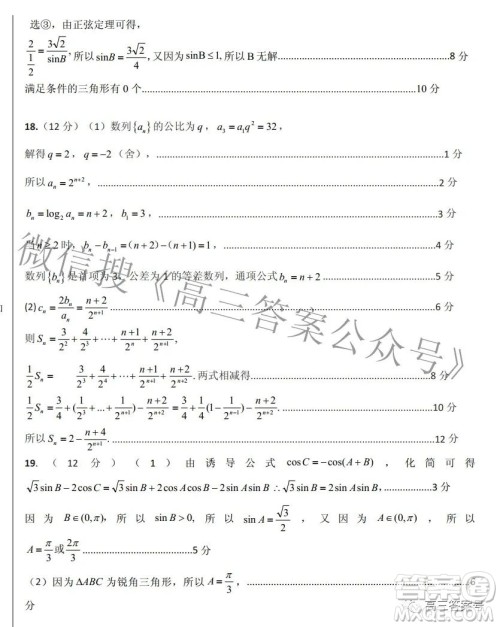 选③，由正弦定理可得，
2/(1/2)=3√2/sinB，所以 sinB=3√2/4，又因为 sinB≤1，所以 B 无解............8 分
满足条件的三角形有 0 个............10 分
18.（12 分）（1）数列{aₙ}的公比为 q，a₃=a₁q²=32，
解得 q=2，q=-2（舍），............1 分
所以 aₙ=2ⁿ⁺²，............2 分
bₙ=log₂aₙ=n+2，b₁=3，............3 分
当 n≥2 时，bₙ-bₙ₋₁=(n+2)-(n+1)=1，............4 分
数列{bₙ}是首项为 3，公差为 1 的等差数列，通项公式 bₙ=n+2............5 分
(2) cₙ=2bₙ/aₙ=(n+2)/2ⁿ⁺¹............6 分
则 Sₙ=3/2²+4/2³+⋯+(n+1)/2ⁿ+(n+2)/2ⁿ⁺¹
1/2 Sₙ= 3/2³+4/2⁴+⋯+(n+1)/2ⁿ⁺¹+(n+2)/2ⁿ⁺². 两式相减得............8 分
1/2 Sₙ=3/4+(1/2³+...+1/2ⁿ⁺¹)-(n+2)/2ⁿ⁺²=3/4+1/4(1-1/2ⁿ⁻¹)-(n+2)/2ⁿ⁺²
所以 Sₙ=2-(n+4)/2ⁿ⁺¹.............12 分
19.（12 分）（1）由诱导公式 cosC=-cos(A+B)，化简可得
√3sinB-2cosC=√3sinB+2cosAcosB-2sinAsinB ∴√3sinB=2sinAsinB，............3 分
因为 B∈(0,π)，所以 sinB>0, 所以 sinA=√3/2，又因为 A∈(0,π)，所以
A=π/3 或 2π/3............5 分
（2）因为 ΔABC 为锐角三角形，所以 A=π/3，............6
分
微信搜《高三答案公众号》
高三答案号